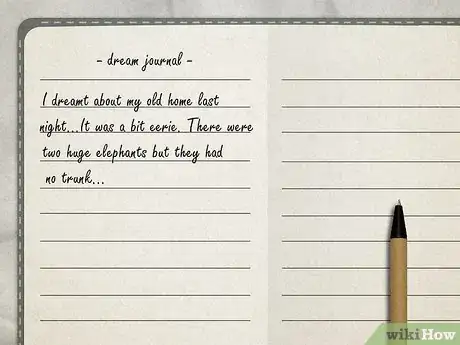 - dream journal -
I dreamt about my old home last
night...It was a bit eerie. There were
two huge elephants but they had
no trunk...
wikiHow